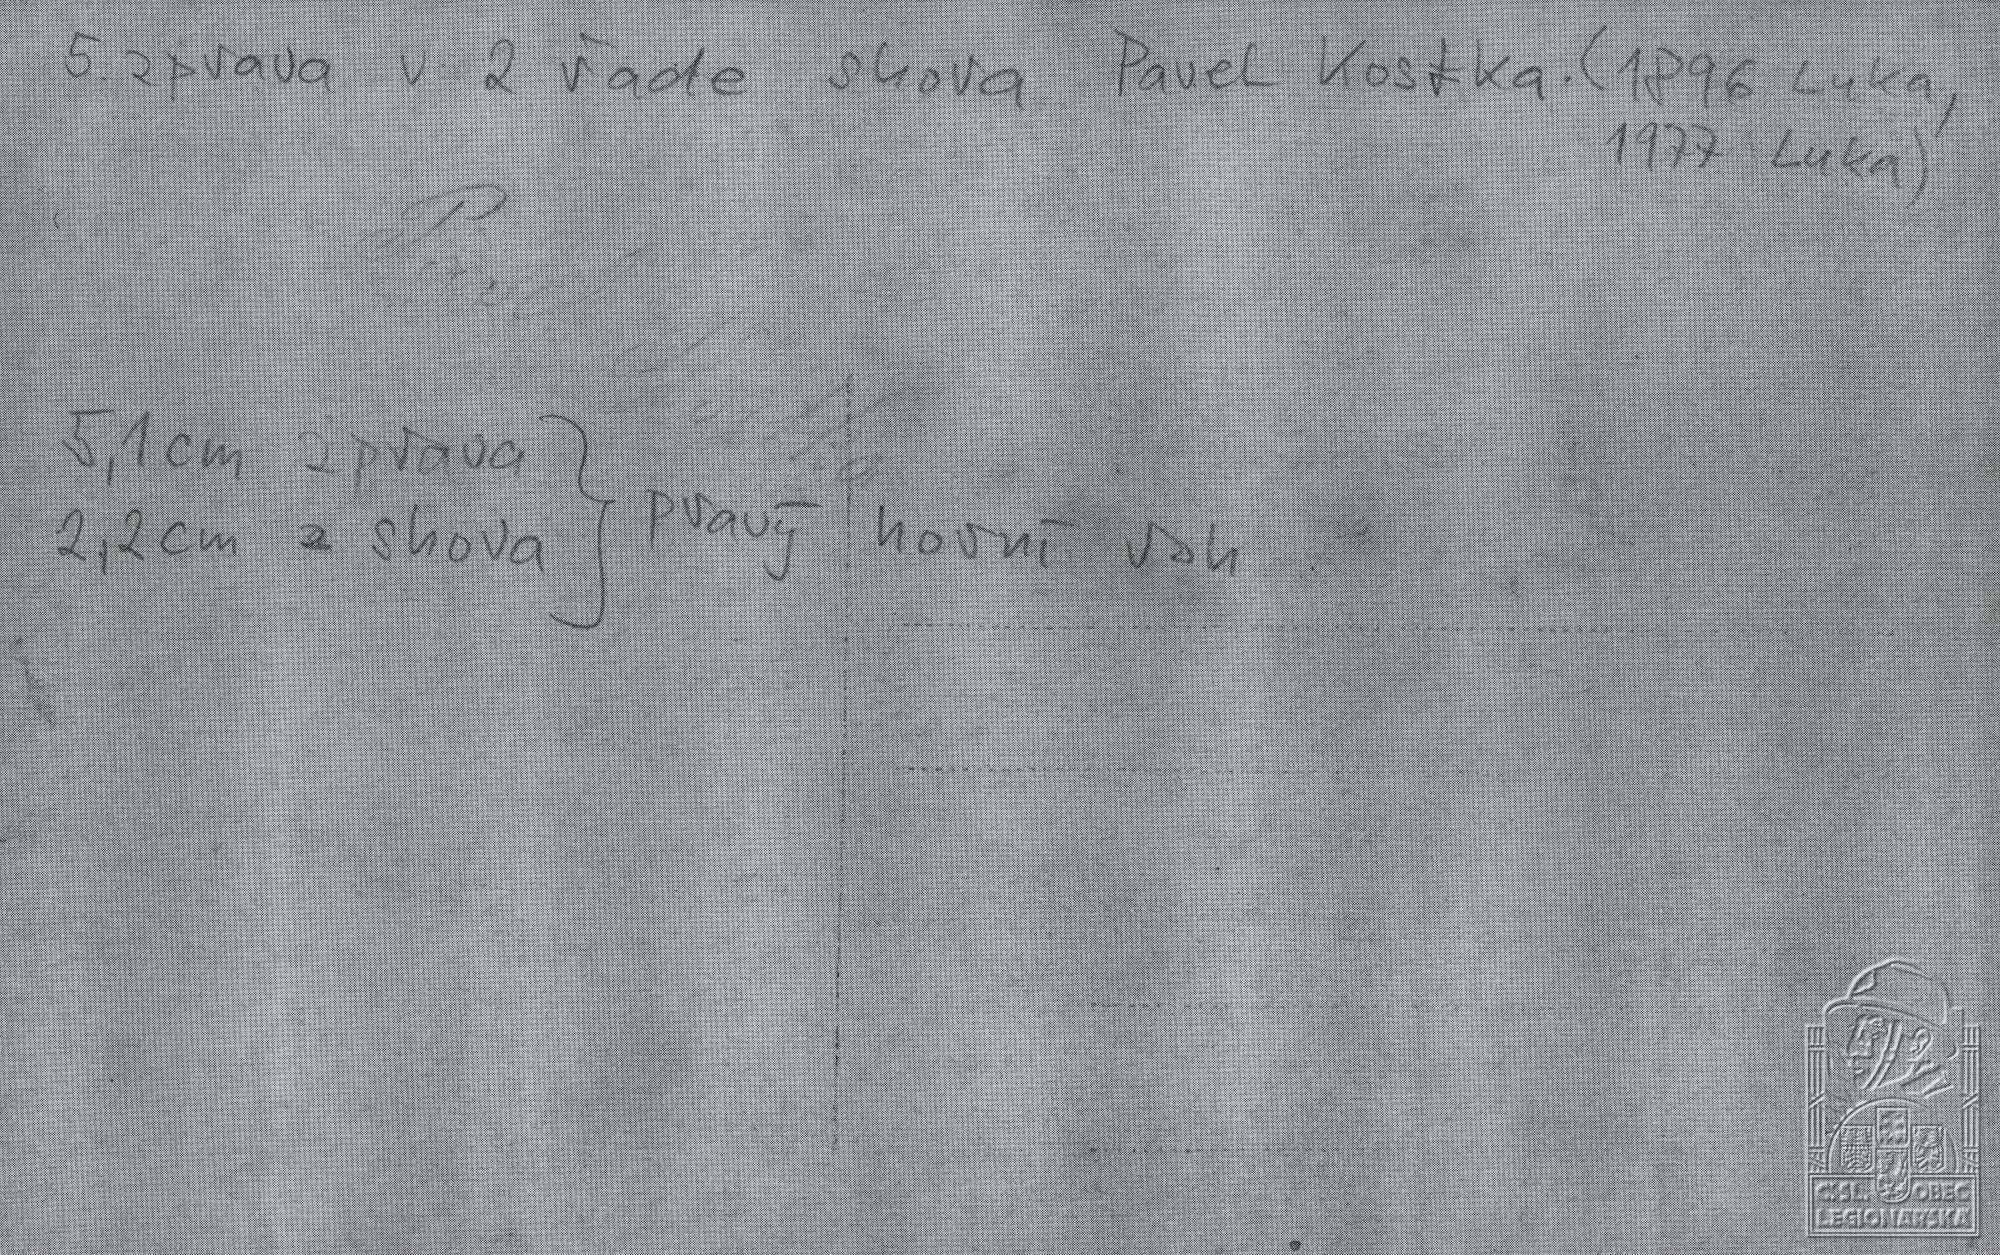 5. zprava v 2 řade shora Pavel Kostka. (1896 Luka,
1977 Luka)
5,1cm zprava
2,2cm z shora } pravý horní roh
Č.SL. OBEC
LEGIONÁŘSKÁ